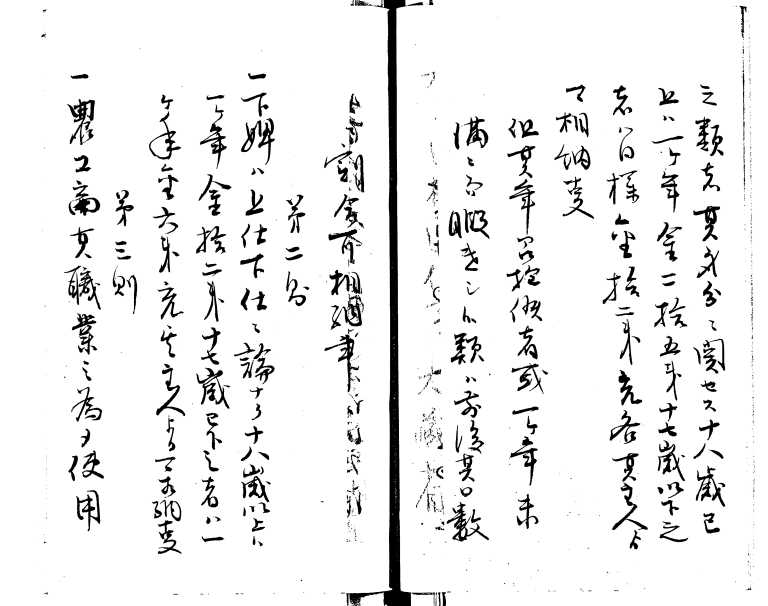 之類者其身分ニ関セス十八歳已
上ハ一ケ年金二拾五銭十七歳以下之
者ハ同様金拾二銭充各其主人ゟ
可相納事
但其年召抱候者或一ケ年未
満ニ而暇差シ候類ハ前後其日数
割金可相納事
第二則
一下婢ハ上仕下仕ニ論ナク十八歳以上ハ
一ケ年金拾二銭十七歳已下之者ハ一
ケ年金六銭充其主人ゟ可相納事
第三則
一農工商其職業之為ヲ使用